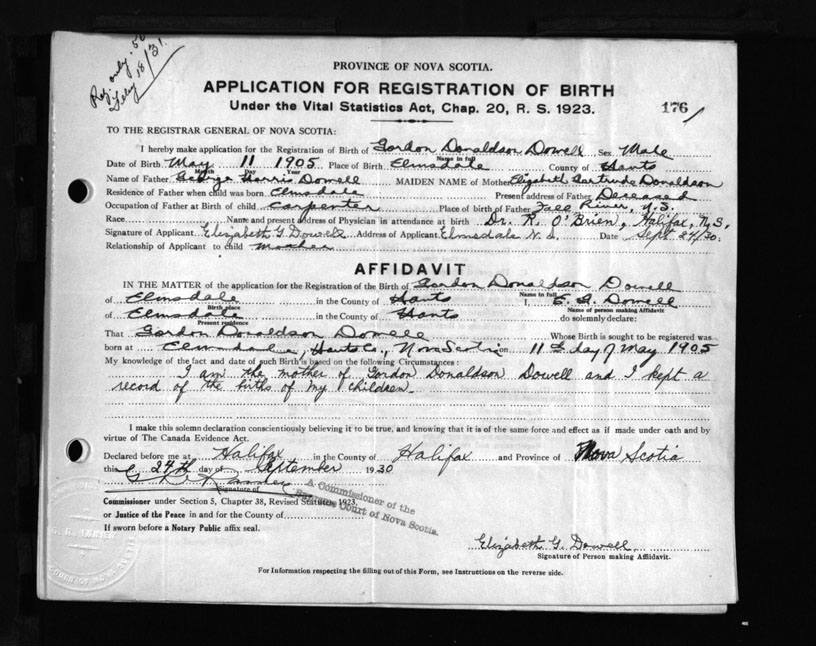 Reg. only .50
July 18/31.
PROVINCE OF NOVA SCOTIA.
APPLICATION FOR REGISTRATION OF BIRTH
Under the Vital Statistics Act, Chap. 20, R. S. 1923.
176
TO THE REGISTRAR GENERAL OF NOVA SCOTIA:
I hereby make application for the Registration of Birth of Gordon Donaldson Dowell Sex Male
Name in full
Date of Birth May 11 1905 Place of Birth Elmsdale County of Hants
Month Day Year
Name of Father George Harris Dowell MAIDEN NAME of Mother Elizabeth Gertrude Donaldson
Residence of Father when child was born Elmsdale Present address of Father Deceased
Occupation of Father at Birth of child Carpenter Place of birth of Father Fall River, N.S.
Race Name and present address of Physician in attendance at birth Dr. R. O'Brien, Halifax, N.S.
Signature of Applicant Elizabeth G. Dowell Address of Applicant Elmsdale N. S. Date Sept 24/30.
Relationship of Applicant to child mother
AFFIDAVIT
IN THE MATTER of the application for the Registration of the Birth of Gordon Donaldson Dowell
Name in full
of Elmsdale in the County of Hants I, E. G. Dowell
Birth place Name of person making Affidavit
of Elmsdale in the County of Hants do solemnly declare:
Present residence
That Gordon Donaldson Dowell Whose Birth is sought to be registered was
born at Elmsdale, Hants Co., Nova Scotia on 11th day of May 1905
My knowledge of the fact and date of such Birth is based on the following Circumstances:
I am the mother of Gordon Donaldson Dowell and I kept a
record of the births of my children.
I make this solemn declaration conscientiously believing it to be true, and knowing that it is of the same force and effect as if made under oath and by
virtue of The Canada Evidence Act.
Declared before me at Halifax in the County of Halifax and Province of Nova Scotia
this 24th day of September 1930
Signature of
A Commissioner of the
Supreme Court of Nova Scotia.
Commissioner under Section 5, Chapter 38, Revised Statutes, 1923.
or Justice of the Peace in and for the County of
If sworn before a Notary Public affix seal.
Elizabeth G. Dowell
Signature of Person making Affidavit.
For Information respecting the filling out of this Form, see Instructions on the reverse side.